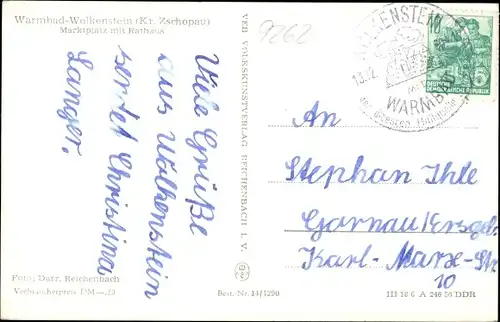 Warmbad-Wolkenstein (Kr. Zschopau)
Marktplatz mit Rathaus
Viele Grüße
aus Wolkenstein
sendet Christina
Langer.
Foto; Darr, Reichenbach
Verbraucherpreis DM —,20
Best.-Nr. 14/1290
VEB VOLKSKUNSTVERLAG REICHENBACH I. V.
9262
WOLKENSTEIN
WARMBAD
DEUTSCHE
DEMOKRATISCHE REPUBLIK
5
An
Stephan Ihle
Gornau/Erzgeb.
Karl-Marx-Str.
10
III 18 6 A 246 56 DDR